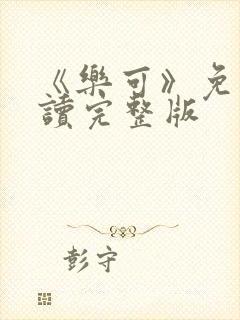 《樂可》免
讀完整版
彭守